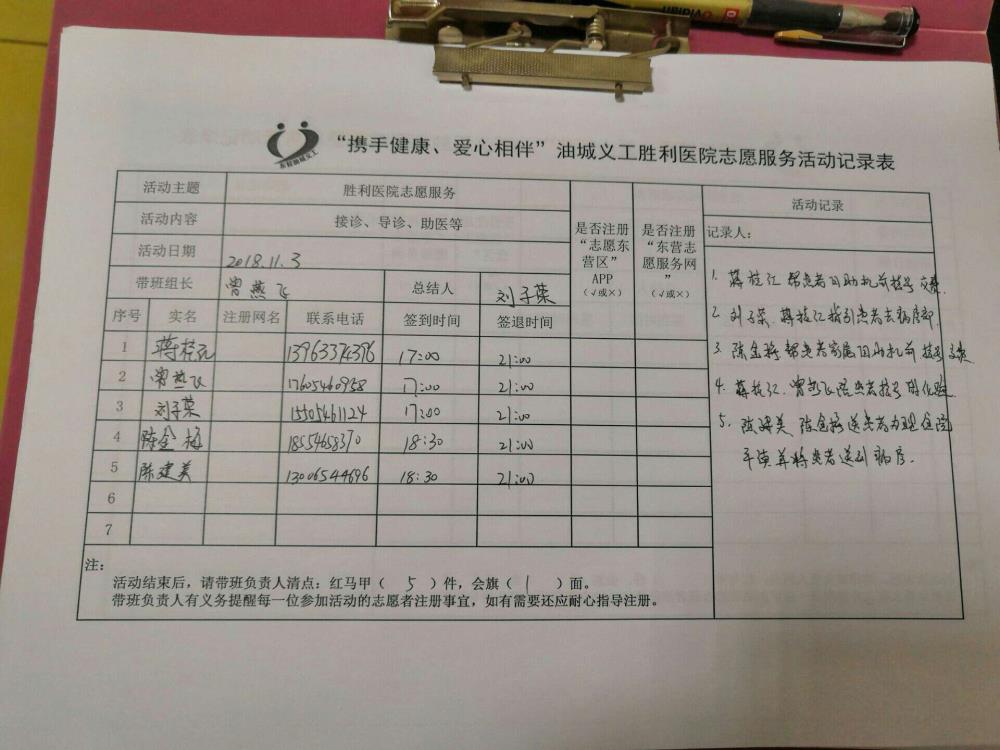 vidian
东营油城义工
“携手健康、爱心相伴”油城义工胜利医院志愿服务活动记录表
活动主题 胜利医院志愿服务
活动内容 接诊、导诊、助医等
活动日期 2018.11.3
带班组长 曾燕飞 总结人 刘子荣
是否注册“志愿东营区”APP（√或×）
是否注册“东营志愿服务网”（√或×）
序号 实名 注册网名 联系电话 签到时间 签退时间
1 蒋桂江 13963374396 17:00 21:00
2 曾燕飞 17605460958 17:00 21:00
3 刘子荣 15505461124 17:00 21:00
4 陈金梅 18554658370 18:30 21:00
5 陈建美 13006544696 18:30 21:00
6
7
注：
活动结束后，请带班负责人清点：红马甲（ 5 ）件，会旗（ 1 ）面。
带班负责人有义务提醒每一位参加活动的志愿者注册事宜，如有需要还应耐心指导注册。
活动记录
记录人：
1. 帮患者自助机前挂号交费.
2. 刘子荣. 指引患者去病房部.
3. 陈金梅 帮患者家属自助机前挂号交费
4. 曾燕飞 患者挂号 化验.
5. 陈建美 陈金梅送患者办理住院
并将患者送到病房.